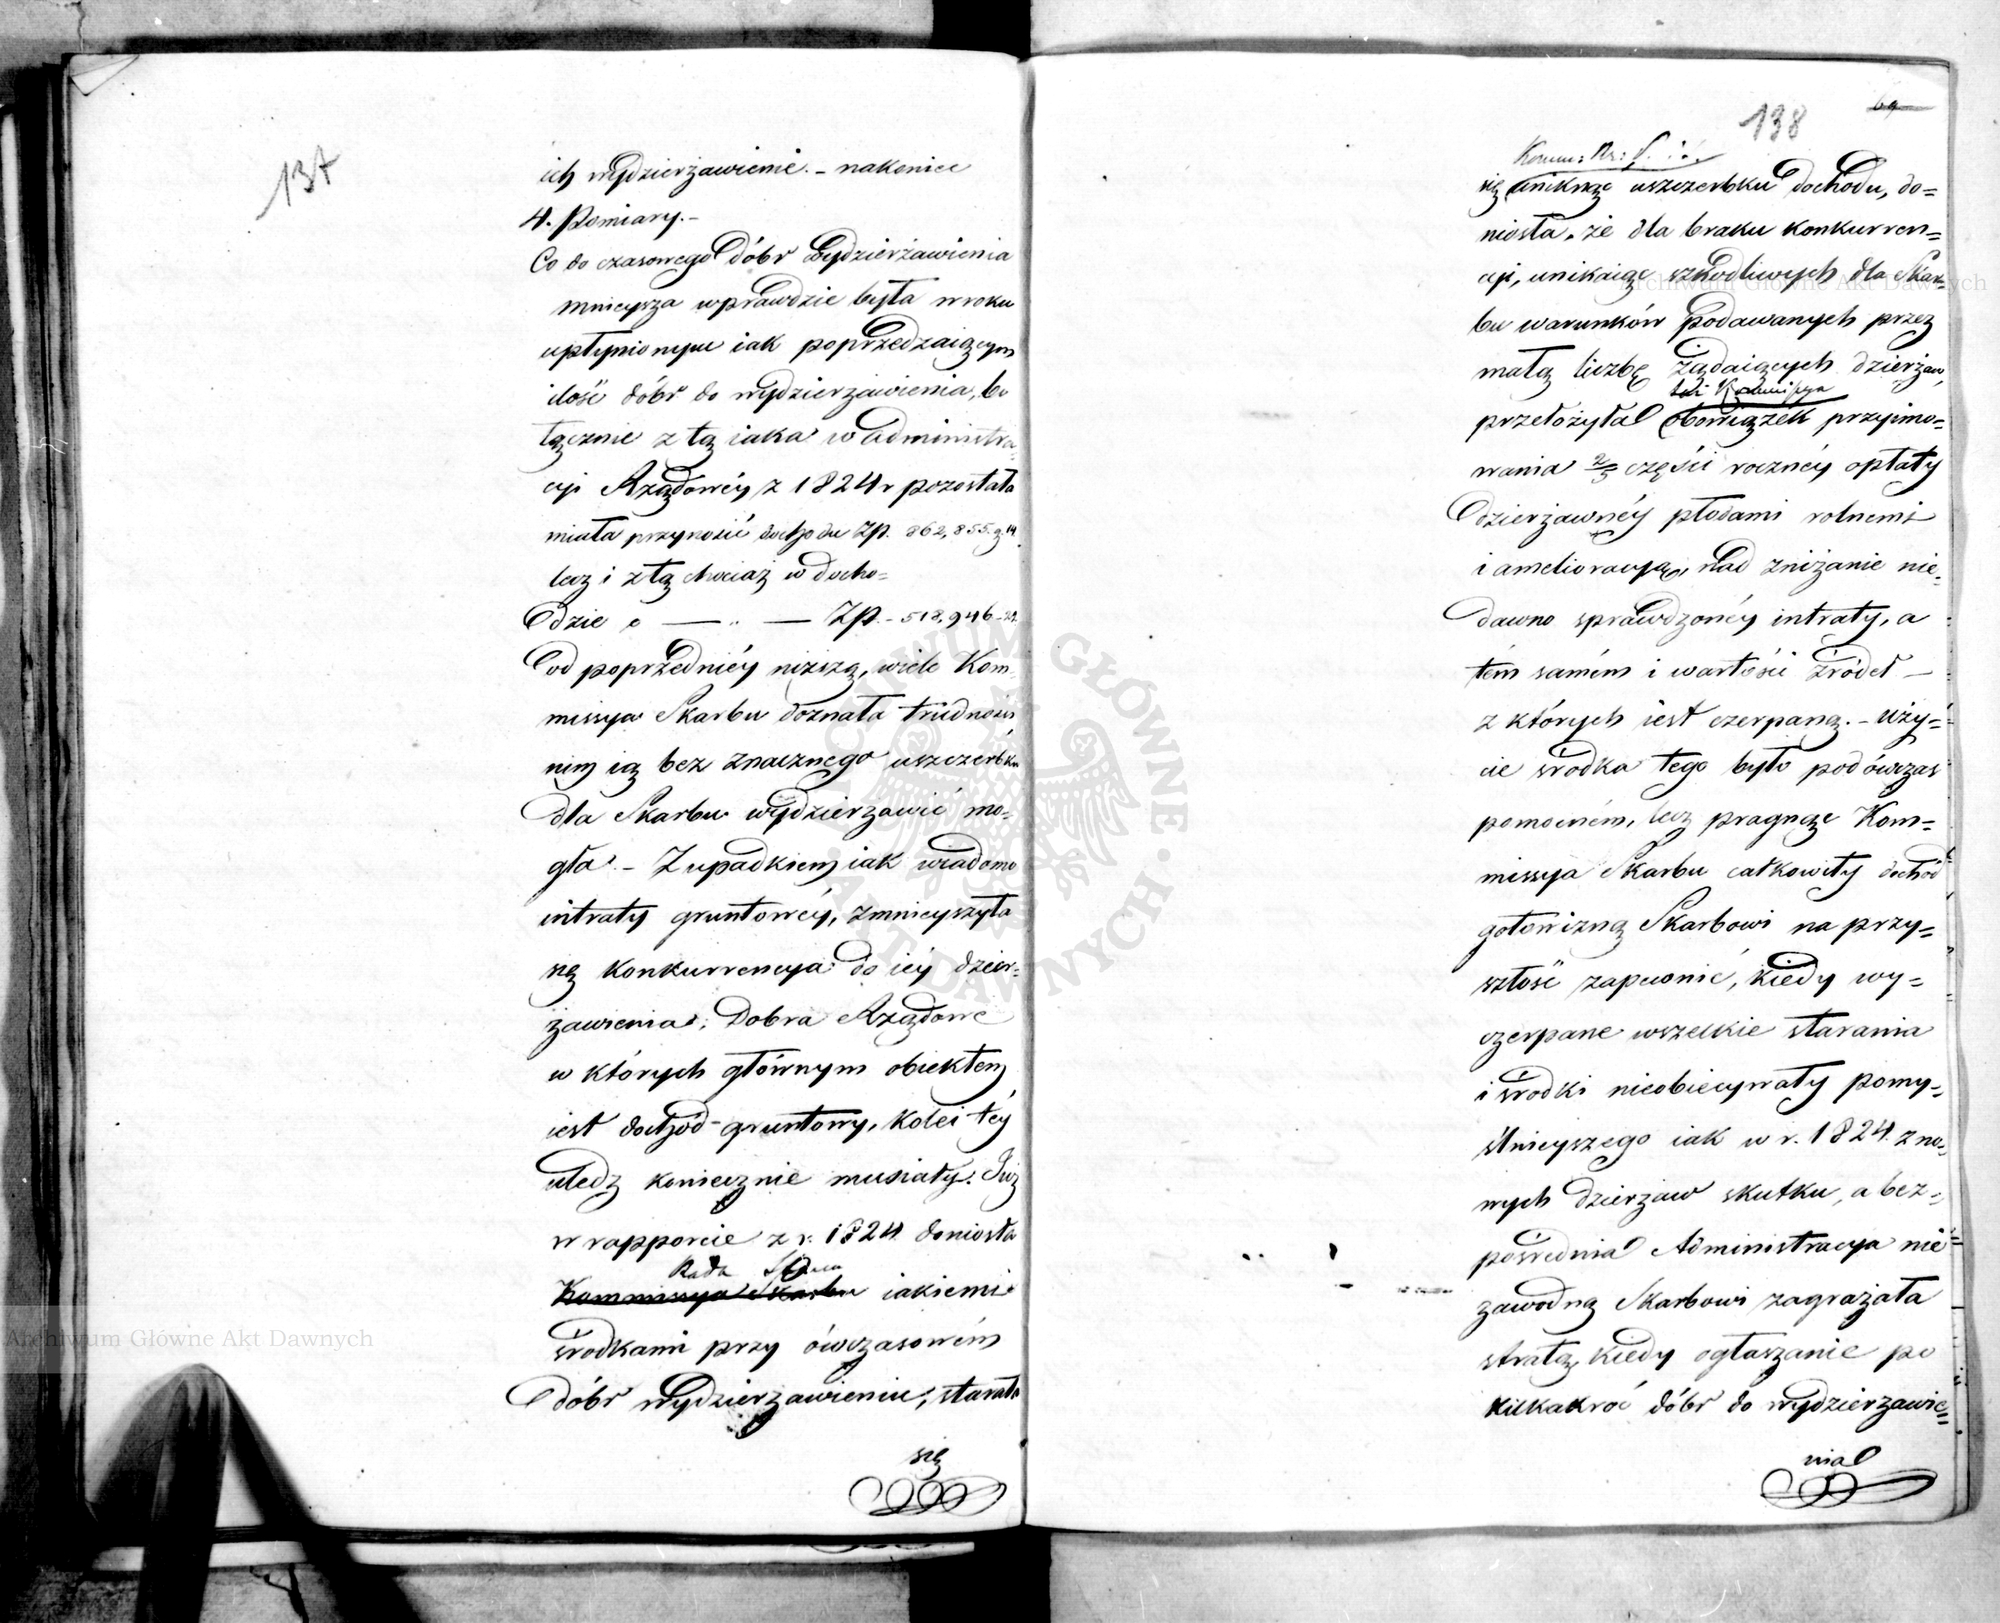 137
ich wydzierżawienie. – nakoniec
4. Pomiary. –
Co do czasowego dóbr wydzierżawienia
mnieysza wprawdzie była w roku
upłynionym iak poprzedzaiącym
ilość dóbr do wydzierżawienia, bo
łącznie z tą iaka w administra-
cyi Rządowéy z 1824 r pozostała
miała przynosić dochodu Zp. 862,855. g. 14
lecz i z tą chociaż w docho=
dzie o — „ — Zp. – 518,946 – 22.
od poprzedniéy niższą, wiele Kom-
missya Skarbu doznała trudności
nim ią bez znacznego uszczerbku
dla Skarbu wydzierżawić mo=
gła. – Z upadkiem iak wiadomo
intraty gruntowéy, zmnieyszyła
się konkurrencya do iéy dzier=
żawienia; Dobra Rządowe
w których głównym obiektem
iest dochód gruntowy, kolei téy
uledz koniecznie musiały. Już
w rapporcie z r. 1824 doniosła
Rada Stanu
Kommissya Skarbu iakiemi
środkami przy ówczasowém
dóbr wydzierżawieniu, starała
się
138
69
się uniknąć uszczerbku dochodu, do=
niosła, że dla braku konkurren=
cyi, unikaiąc szkodliwych dla Skar=
bu warunków podawanych przez
małą liczbę żądaiących dzierżaw,
też Kommissya
przełożyła obowiązek przyimo=
wania 2/3 części rocznéy opłaty
dzierżawnéy płodami rolnemi
i amelioracyą, nad zniżanie nie=
dawno sprawdzonéy intraty, a
tém samém i wartości źródeł —
z których iest czerpaną. – Uży=
cie środka tego było podówczas
pomocném, lecz pragnąc Kom=
missya Skarbu całkowity dochód
gotowizną Skarbowi na przy=
szłość zapewnić, kiedy wy=
czerpane wszelkie starania
i środki nieobiecywały pomy=
ślnieyszego iak w r. 1824. z no=
wych dzierżaw skutku, a bez=
pośrednia Administracya nie=
zawodną Skarbowi zagrażała
stratą, kiedy ogłaszanie po
kilkakroć dóbr do wydzierżawie=
nia
Archiwum Główne Akt Dawnych
Archiwum Główne Akt Dawnych
ARCHIWUM GŁÓWNE · AKT DAWNYCH ·